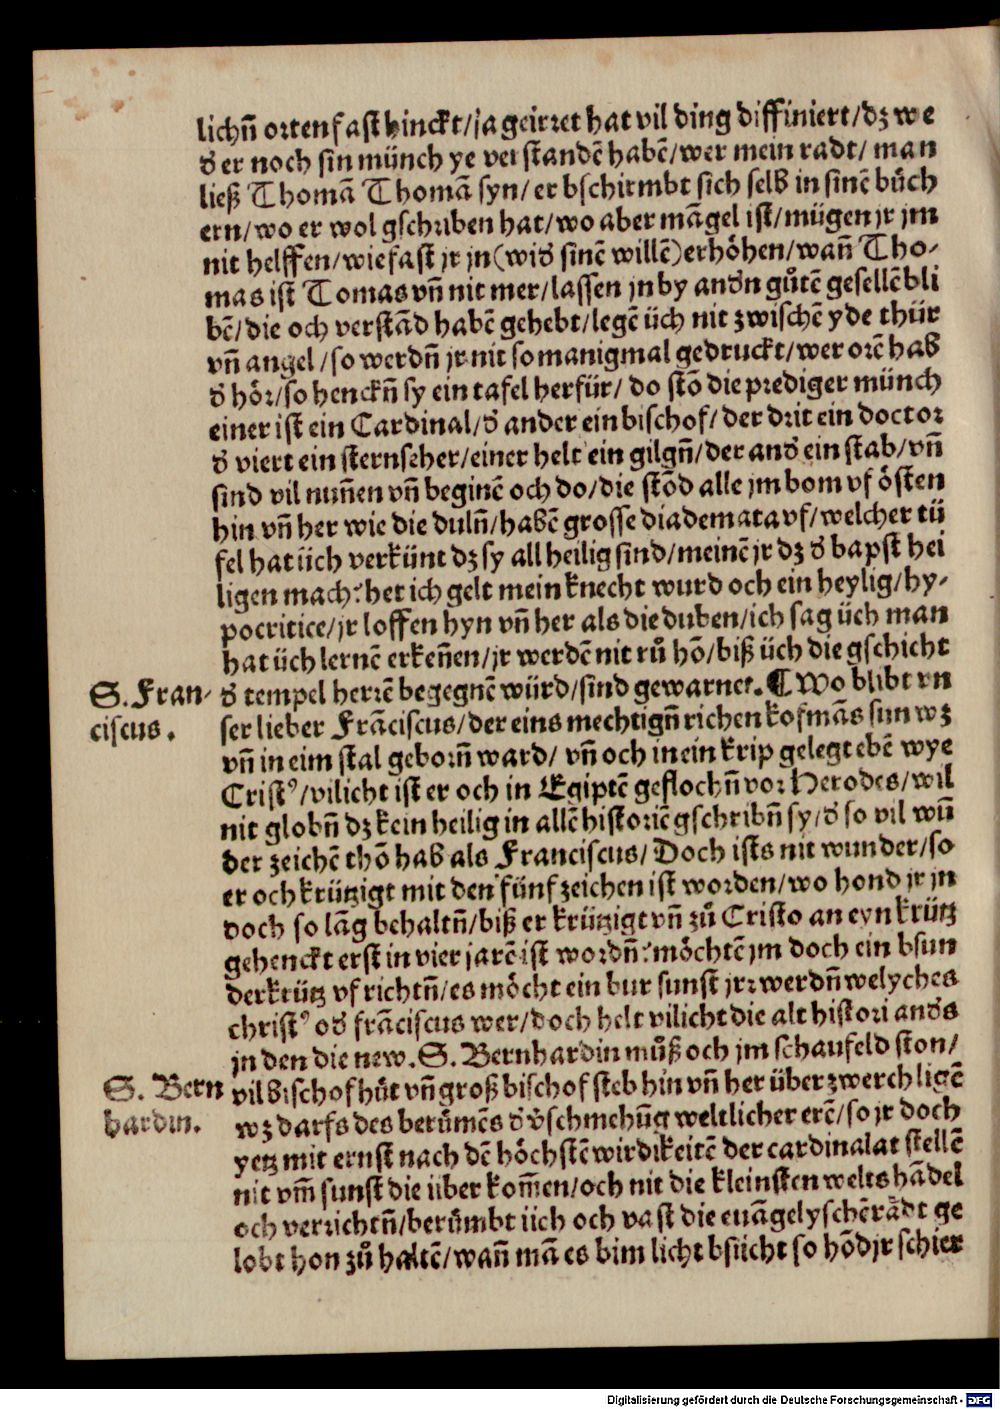 lichñ orten fast hinckt/ja geirret hat vil ding diffiniert/dz we
d' er noch sin münch ye verstandē habē/wer mein radt/ man
ließ Thomā Thomā syn/er bschirmbt sich selb in sinē bůch
ern/wo er wol gschriben hat/wo aber māgel ist/mügen jr jm
nit helffen/wie fast jr jn (wid' sinē willē) erhöhen/wañ Tho-
mas ist Tomas vñ nit mer/lassen jn by and'n gůtē gesellē bli
bē/die och verstād habē gehebt/legē üch nit zwischē yde thür
vñ angel/so werdñ jr nit so manigmal gedruckt/wer orē hab
d' hör/so henckñ sy ein tafel herfür/ do stō die prediger münch
einer ist ein Cardinal/d' ander ein bischof/der drit ein doctor
d' viert ein sternseher/einer helt ein gilgñ/der and' ein stab/vñ
sind vil nuñen vñ beginē och do/die stōd alle jm bom vf östen
hin vñ her wie die dulñ/habē grosse diademata vf/welcher tü
fel hat üch verkünt dz sy all heilig sind/meinē jr dz d' bapst hei
ligen mach? het ich gelt mein knecht wurd och ein heylig/hy-
pocritice/jr loffen hyn vñ her als die duben/ich sag üch man
hat üch lernē erkeñen/jr werdē nit rů hō/biß üch die gschicht
S. Fran-
ciscus.
d' tempel herrē begegnē würd/sind gewarnet. ¶ Wo blibt vn
ser lieber Frāciscus/der eins mechtigñ richen kofmās sun wz
vñ in eim stal geborñ ward/ vñ och in ein krip gelegt ebē wye
Cristꝰ/vilicht ist er och in Egiptē geflochñ vor Herodes/wil
nit globñ dz kein heilig in allē historiē gschribñ sy/d' so vil wū
der zeichē thō hab als Franciscus/ Doch ists nit wunder/so
er och krützigt mit den fünf zeichen ist worden/wo hond jr jn
doch so lāg behaltñ/biß er krützigt vñ zů Cristo an eyn krütz
gehenckt erst in vier jarē ist wordñ? möchtē jm doch ein bsun
der krütz vf richtñ/es möcht ein bur sunst jrr werdñ welyches
christꝰ od' frāciscus wer/doch helt vilicht die alt histori and's
jn den die new. S. Bernhardin můß och jm schaufeld ston/
S. Bern
hardin.
vil bischof hůt vñ groß bischof steb hin vñ her über zwerch ligē
wz darfs des berůmēs d' v'schmehūg weltlicher erē/so jr doch
yetz mit ernst nach dē höchstē wirdikeitē der cardinalat stellē
nit vm̄ sunst die über kom̄en/och nit die kleinsten welts hādel
och verrichtñ/berůmbt üch och vast die euāgelyschē rädt ge
lobt hon zů haltē/wañ mā es bim licht bsücht so hōd jr schier
Digitalisierung gefördert durch die Deutsche Forschungsgemeinschaft - DFG